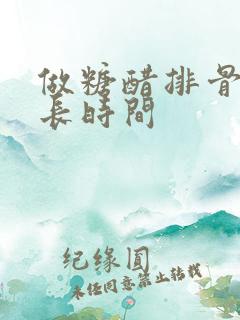 做糖醋排骨
長時間
纪缘圆
未经同意禁止转载